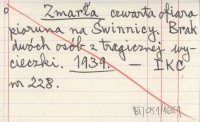 Zmarła czwarta ofiara
pioruna na Świnnicy. Brak
dwóch osób z tragicznej wy-
cieczki. 1939. — IKC
nr 228.